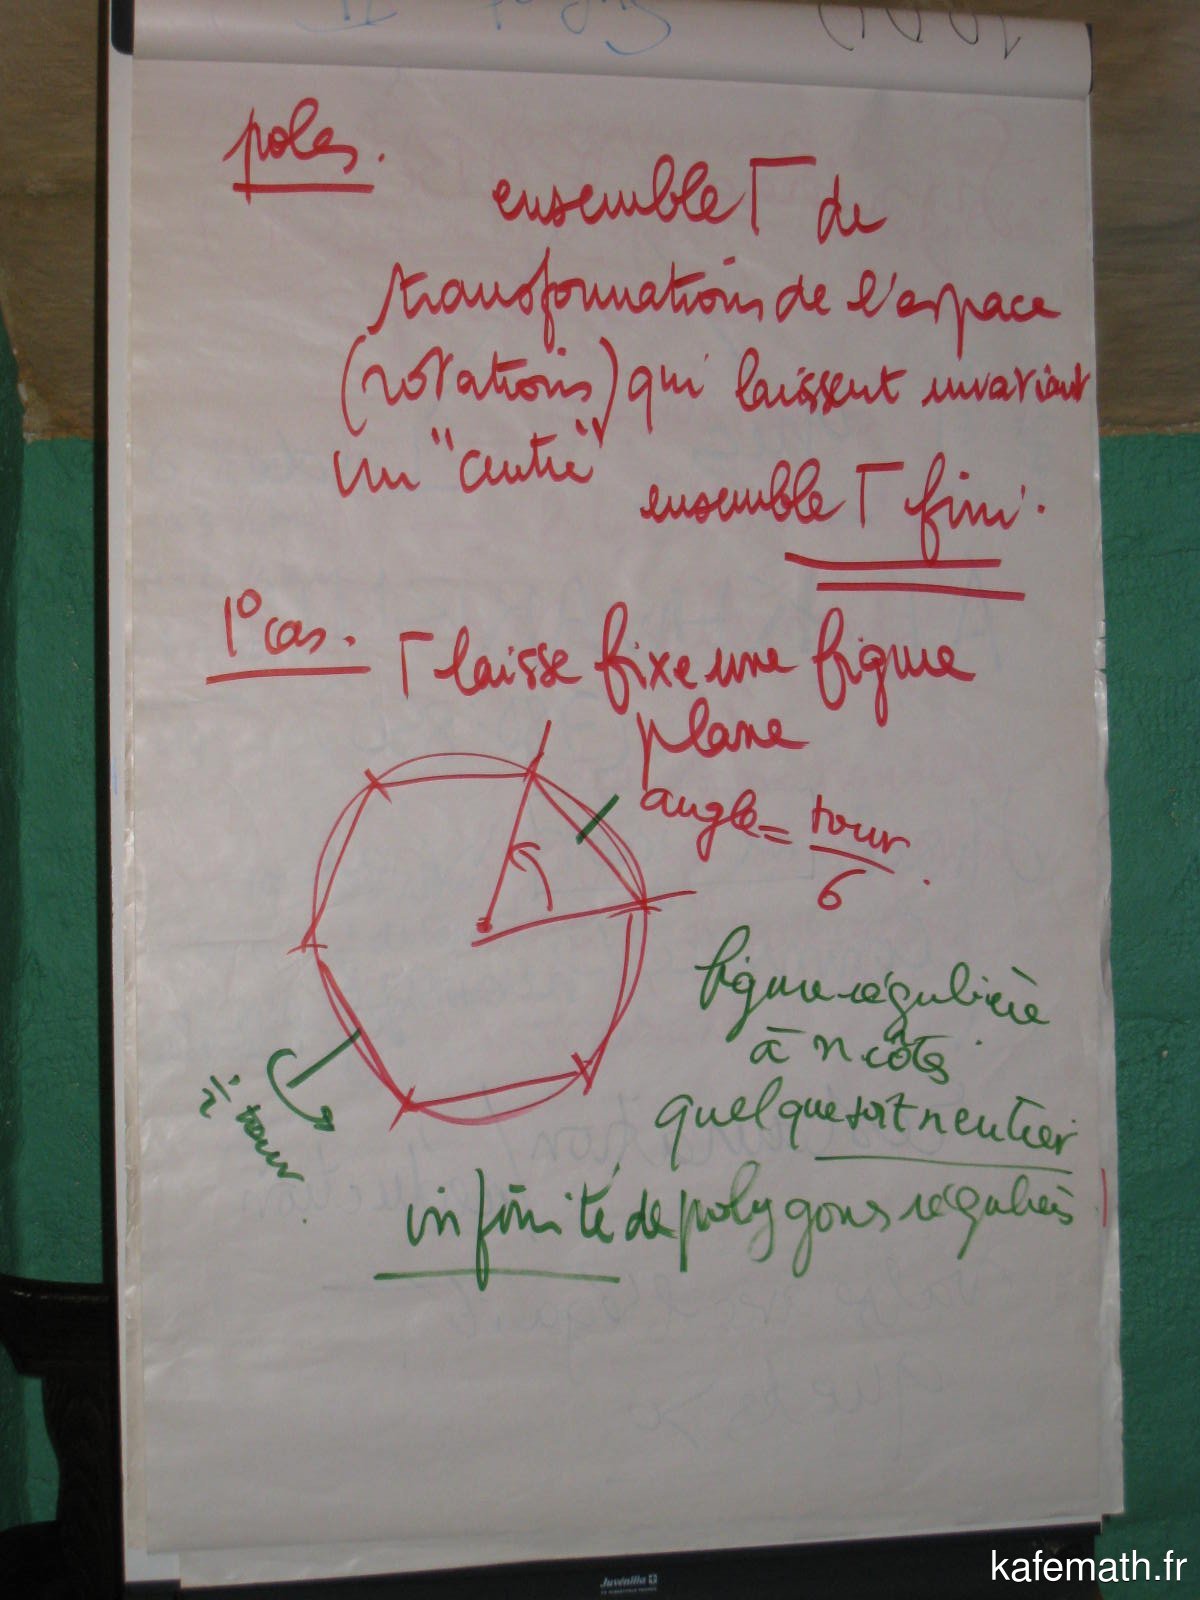 poles.
ensemble Γ de
transformations de l'espace
(rotations) qui laissent invariant
un "centre"
ensemble Γ fini.
1° cas. Γ laisse fixe une figure
plane
angle = tour
6
figure régulière
à n côtés
quel que soit n entier
½ tour
infinité de polygones réguliers
Juvénilia
kafemath.fr